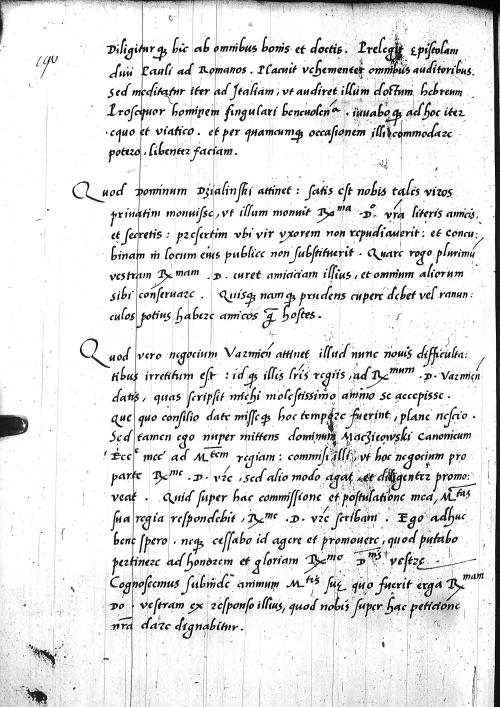 190
Diligiturq3 hic ab omnibus bonis et doctis. Prelegit Epistolam
divi Pauli ad Romanos. Placuit vehementer omnibus auditoribus.
Sed meditatur iter ad Italiam, vt audiret illum doctum hebreum
Prosequor hominem singulari benevolenᵃ. iuuaboq3 ad hoc iter
equo et viatico. et per quamcumq3 occasionem illi commodare
potero, libenter faciam.
Quod Dominum Dzialinski attinet: satis est nobis tales viros
priuatim monuisse, vt illum monuit Rᵐᵃ D.ᵒ vra literis amicis
et secretis: presertim vbi vir vxorem non repudiauerit: et concu:
binam in locum eius publice non substituerit. Quare rogo plurimū
vestram Rᵐᵃᵐ .D. curet amiciciam illius, et omnium aliorum
sibi conseruare. Quisq3 namq3 prudens cupere debet vel ranun:
culos potius habere amicos q̄ hostes.
Quod vero negocium Varmieñ attinet illud nunc nouis difficulta:
tibus irretitum est: idq3 illis lris regiis, ad Rᵐᵘᵐ .D. Varmieñ
datis, quas scripsit michi molestissimo animo se accepisse.
Que quo consilio date misseq3 hoc tempore fuerint, plane nescio.
Sed tamen ego nuper mittens dominum Macziewski Canonicum
Eccᵉ meē ad Mᵗᵉᵐ regiam: commisi illi, vt hoc negocium pro
parte Rᵐᵉ .D. vrē, sed alio modo agat et diligenter promo:
veat. Quid super hac commissione et postulatione mea, Mᵗᵃˢ
sua regia respondebit, Rᵐᵉ .D. vrē scribam. Ego adhuc
bene spero. neq3 cessabo id agere et promouere, quod putabo
pertinere ad honorem et gloriam Rᵐᵉ Dᵐⁱˢ vestrę.
Cognoscemus subinde animum Mᵗⁱˢ suę quo fuerit erga Rᵐᵃᵐ
Do. vestram ex responso illius, quod nobis super hac peticione
nrā dare dignabitur.